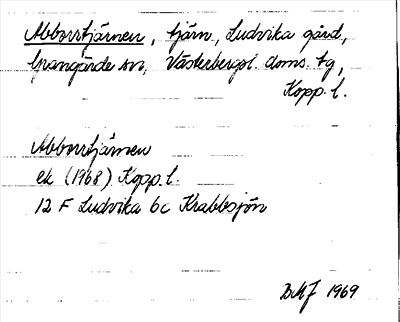 Abborrtjärnen, tjärn, Ludvika gård,
Grangärde sn, Västerbergsl. doms. tg,
Kopp. l.
Abborrtjärnen
ek (1968) Kopp. l.
12 F Ludvika 6c Krabbsjön
BMJ 1969